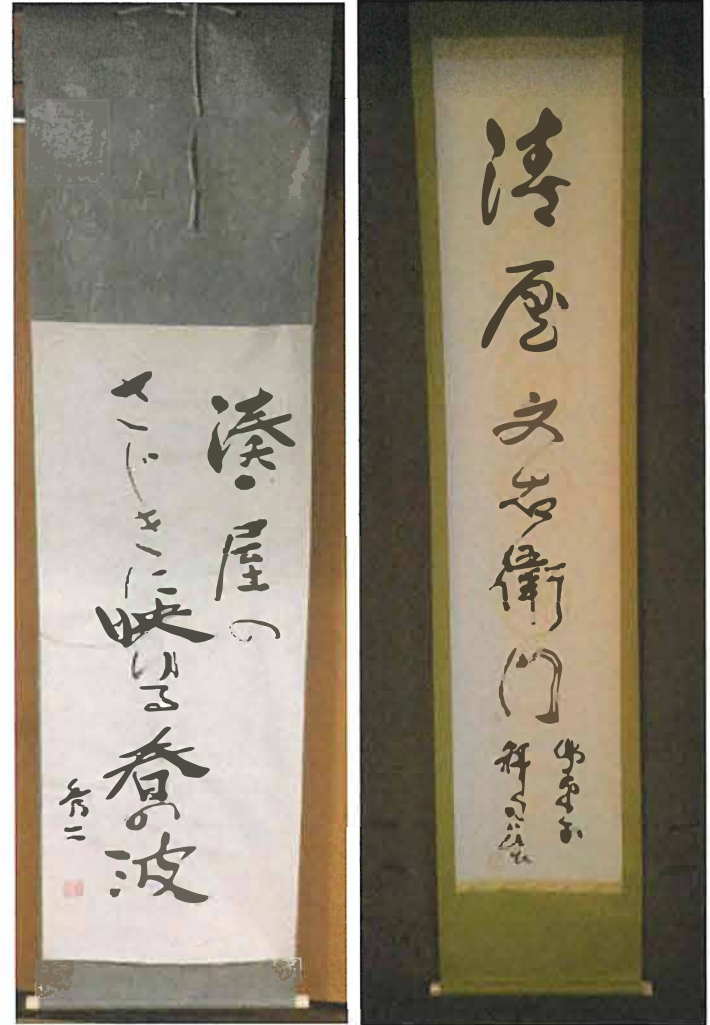 湊屋の
さじきに映ける春の波
秀二
湊屋文右衛門